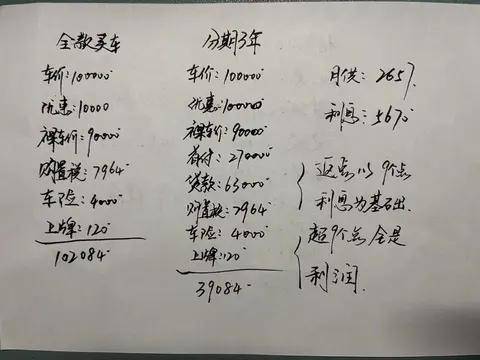 全款买车
车价:100000
优惠:10000
裸车价:90000
购置税:7964
车险:4000
上牌:120
102084
分期3年
车价:100000
优惠:100000
裸车价:90000
首付:270000
贷款:63000
购置税:7964
车险:4000
上牌:120
39084
月供:2657
利息:5670
返点以9个点
利息为基础出
超9个点全是
利润